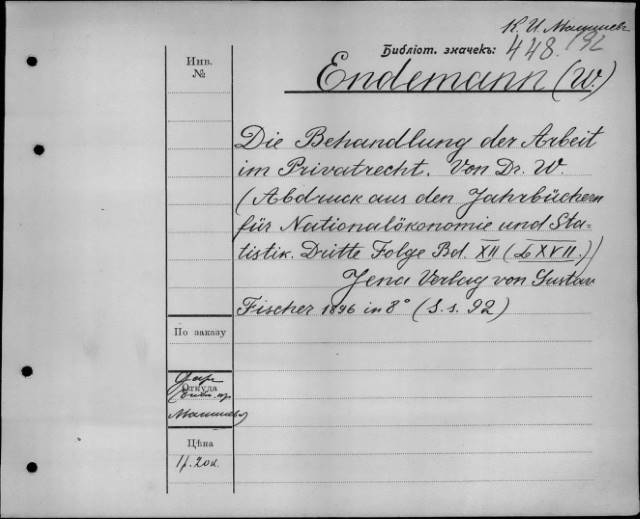 К. И. Малышевъ
Библіот. значекъ: 448/92
Инв.
№
Endemann (W.)
Die Behandlung der Arbeit
im Privatrecht. Von Dr. W.
(Abdruck aus den Jahrbüchern
für Nationalökonomie und Sta-
tistik. Dritte Folge Bd. XII (LXVII.))
Jena Verlag von Gustav
Fischer 1896 in 8° (S.s. 92)
По заказу
Откуда
Малышева
Цѣна
1р. 20к.